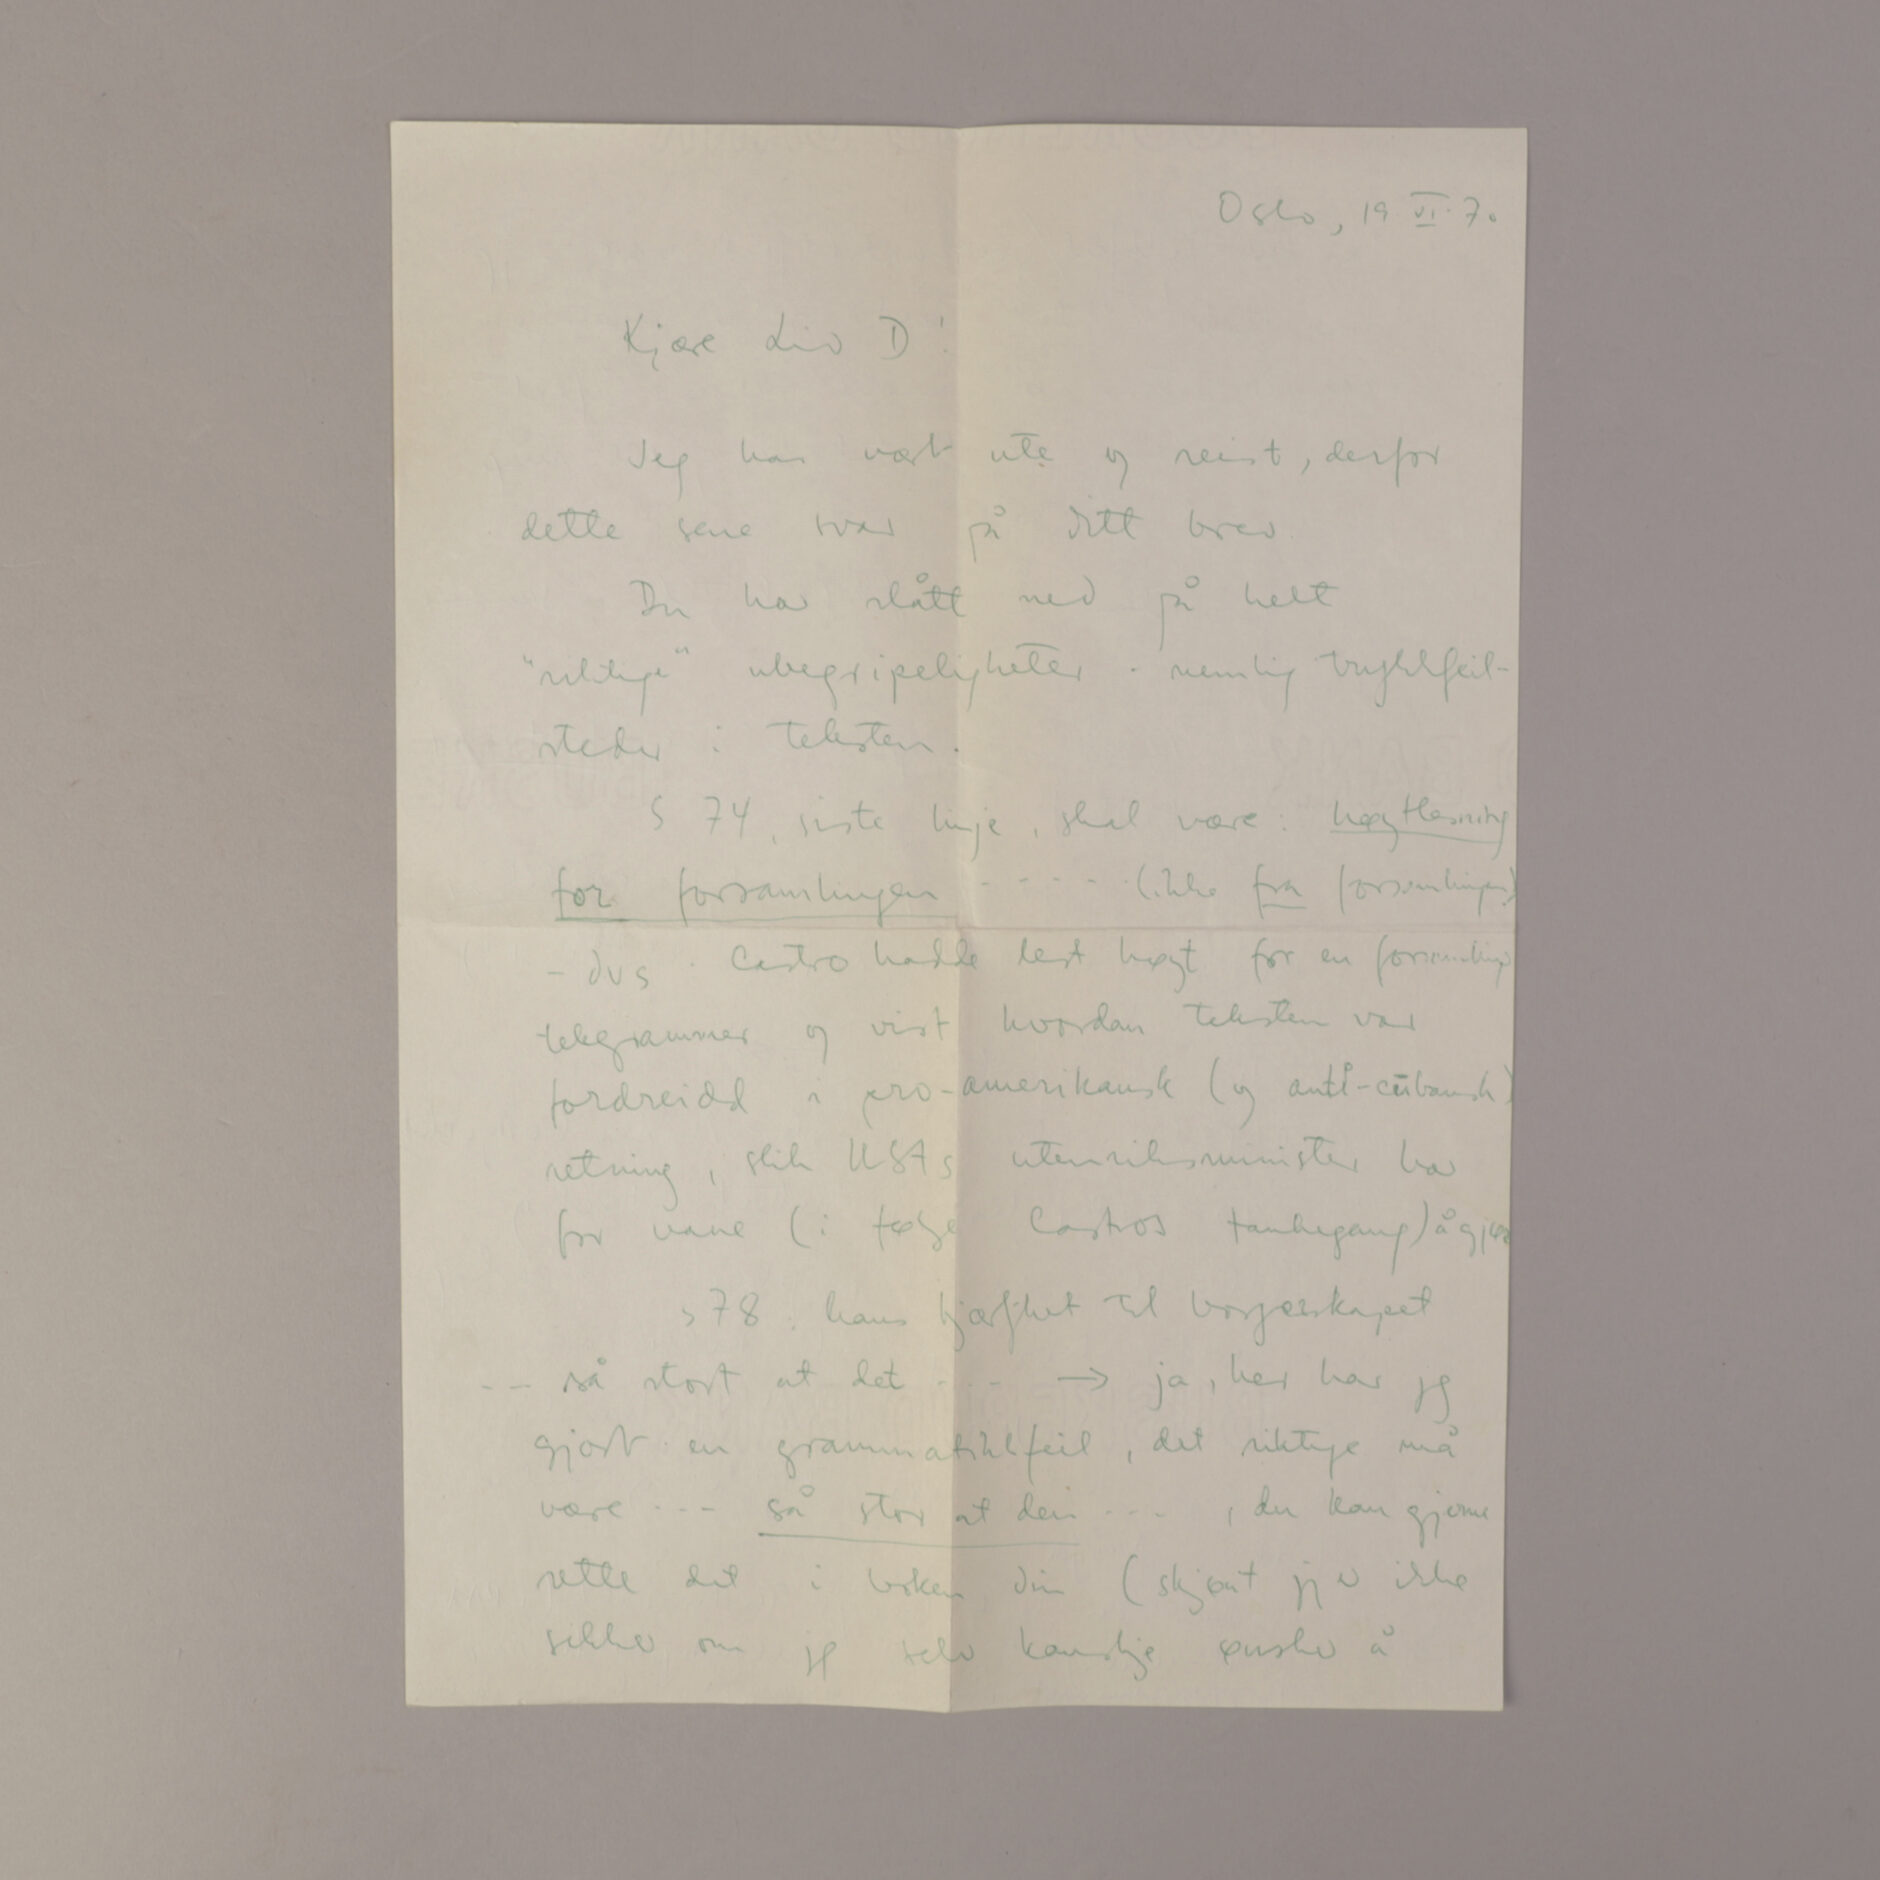 Oslo, 19 VI. 70
Kjære Liv D!
Jeg har vært ute og reist, derfor
dette sene svar på ditt brev
Du har slått ned på helt
"riktige" ubegripeligheter - nemlig trykkfeil-
steder i teksten.
S 74, siste linje, skal være: høytlesning
for forsamlingen - - - - - (ikke fra forsamlingen)
- dvs. Castro hadde lest høyt for en forsamling
telegrammer og vist hvordan teksten var
fordreidd i pro-amerikansk (og anti-cubansk)
retning, slik USAs utenriksminister har
for vane (i følge Castros tankegang) å gjøre
s 78. hans kjærlighet til borgerskapet
-- så stort at det - - - → ja, her har jeg
gjort en grammatikkfeil, det riktige må
være --- så stor at den - - - , du kan gjerne
rette det i boken din (skjønt jeg er ikke
sikker om jeg selv kanskje ønsker å